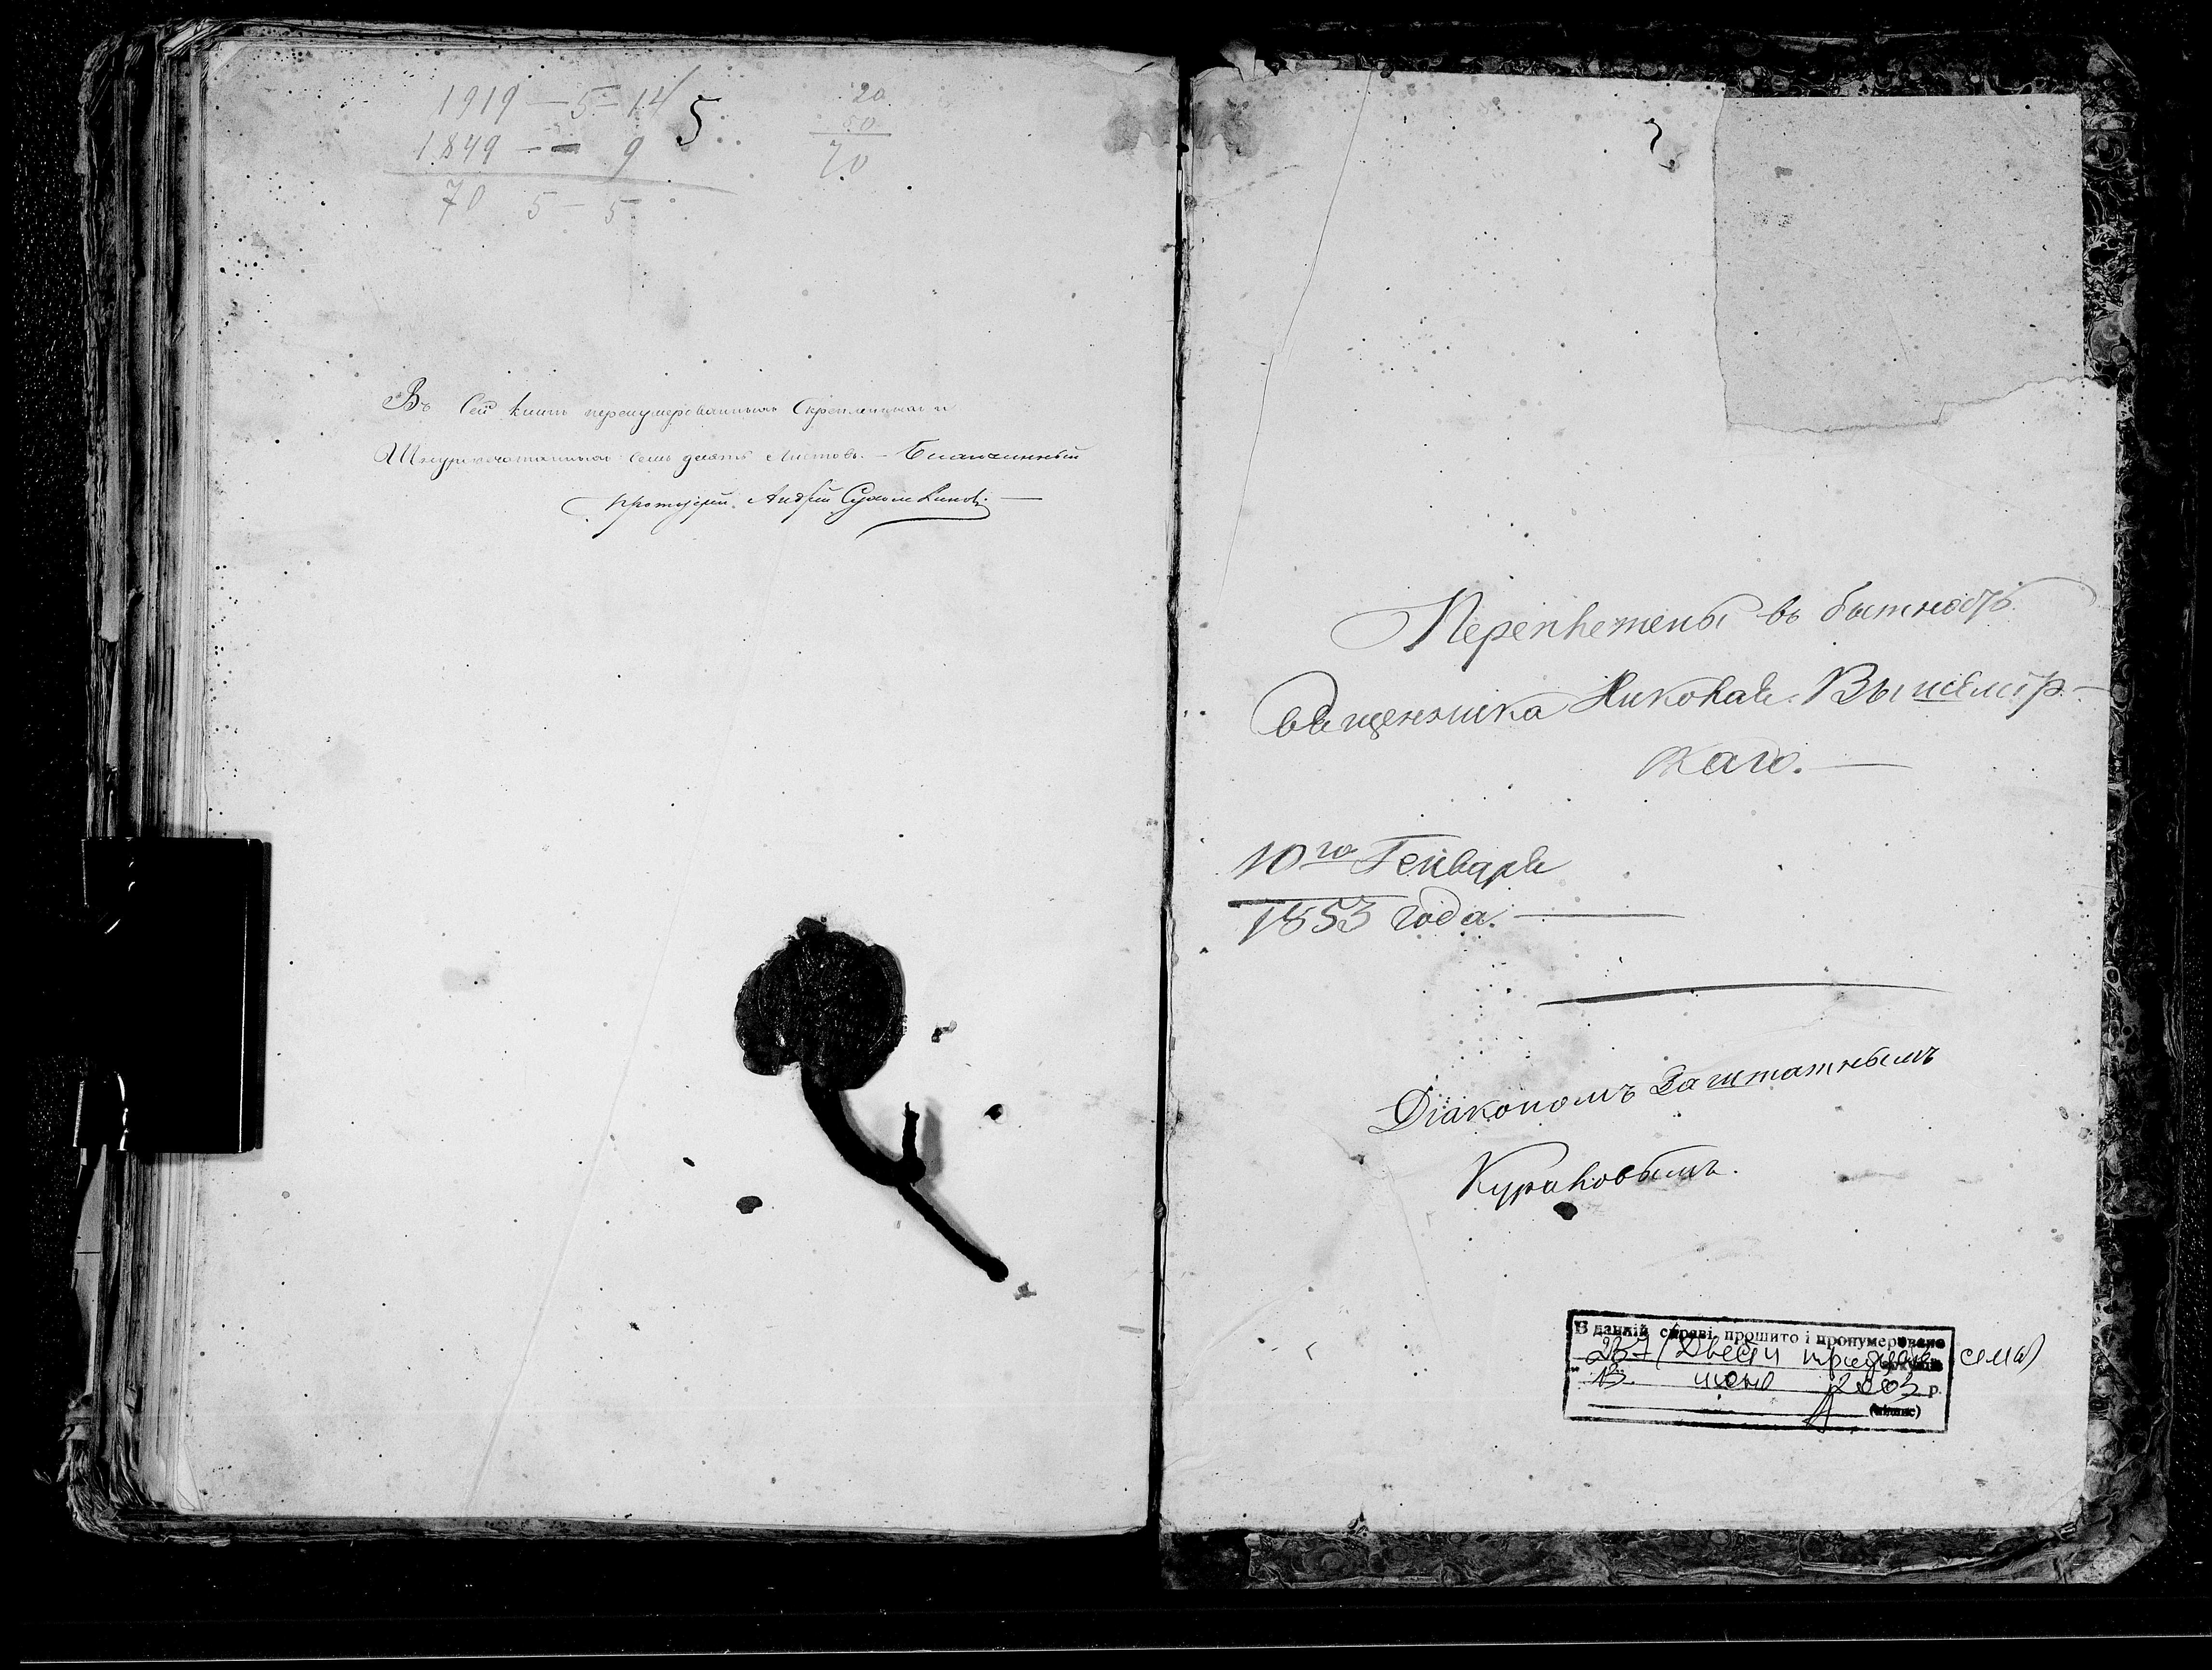 1919 — 5 — 14
5
1849 — — 9
70 5 — 5
20
50
70
Въ сей книгѣ перенумерованныхъ скрепленныхъ и
Шнурозапечатанныхъ семь десятъ листовъ. — Благочинный
Протоіерей Андрей
Переплетены въ бытность
священника Николая
каго. —
10го Генваря
1853 года. —
Діакономъ Заштатнымъ
Кураковымъ.
В данній справі прошито і пронумеровано
237 (Двести тридцать семь)
13. июня 2003 р.
(підпис)